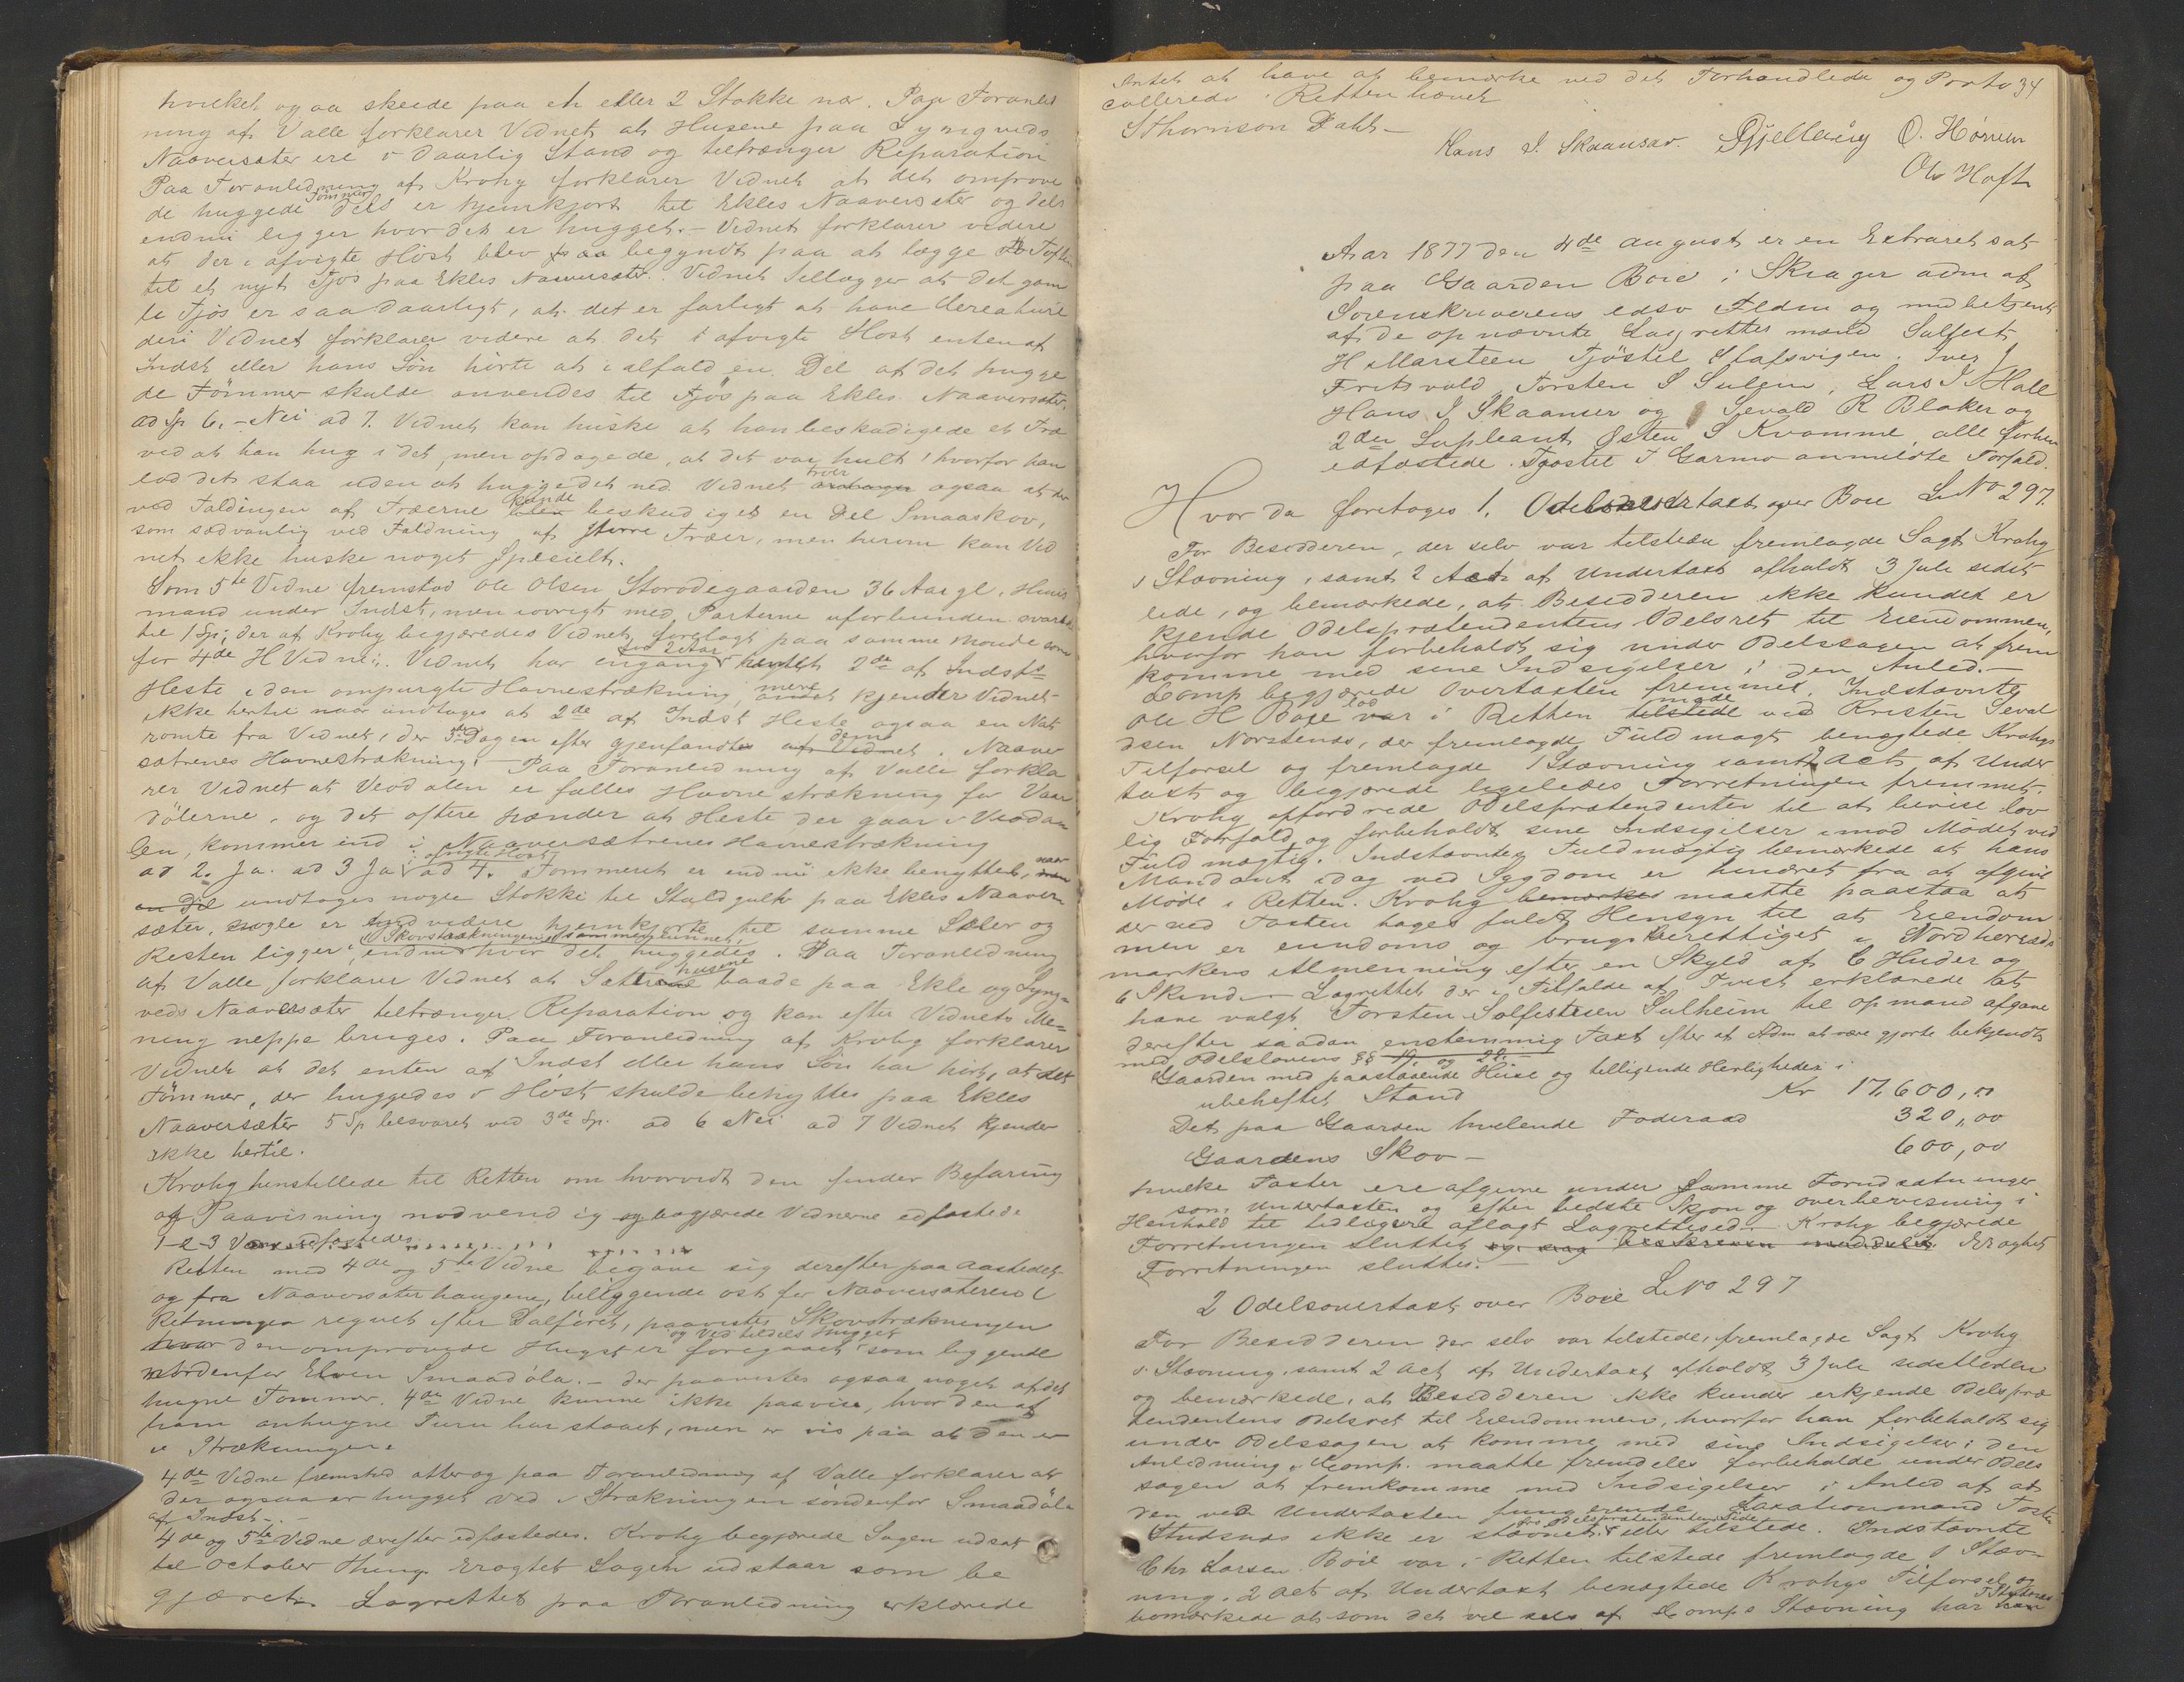 hvilket ogsaa skeede paa et eller 2 Stokke nær. Paa Foranled
ning af Valle forklarer Vidnet at Husene paa Lyngveds
Naaversæter ere i daarlig Stand og tiltrænger Reparation
Paa Foranledning af Krohg forklarer Vidnet at det omprove
de huggede Tømmer dels er hjemkjørt til Ekles Naaversæter og dels
endnu ligger hvor det er hugget. - Vidnet forklarer videre
at der i afvigte Høst blev begyndt paa at lægge Toften
til et nyt Fjøs paa Ekles Naaversæter. Vidnet tillægger at det gam
le Fjøs er saa daarligt, at det er farligt at have Kreature
deri Vidnet forklarer videre at det i afvigte Høst enten af
Indst eller hans Søn hørte at i alfald en Del af det hugge
de Tømmer skulde anvendes til Fjøs paa Ekles Naaversæter.
ad Sp 6. - Nei ad 7. Vidnet kan huske at han beskadigede et Træ
ved at han hug i det, men opdagede, at det var hult, hvorfor han
lod det staa uden at hugge det ned. Vidnet troer ogsaa at der
ved Faldingen af Træerne kunde beskadiget en Del Smaaskov,
som sædvanlig ved Faldning af større Træer, men herom kan Vid
net ikke huske noget Specielt.
Som 5te Vidne fremstod Ole Olsen Storødegaarden 36 Aar gl. Huus
mand under Indst, men iøvrigt med Parterne uforbunden svarede
til 1 Sp. der af Krohg begjæredes Vidnet forelagt paa samme Maade som
for 4de H Vidne: Vidnet har engang for 2 Aar hentet 2de af Indsts
Heste i den ompurgte Havnestrækning, mere kjender Vidnet
ikke hertil naar undtages at 2de af Indst Heste ogsaa en Nat
rømte fra Vidnet, der 3die Dagen efter gjenfandt dem i Naaver
sætrenes Havnestrækning. - Paa Foranledning af Valle forkla
rer Vidnet at Veodalen er fælles Havnestrækning for Vaar
dølerne, og det oftere hænder at Heste der gaar i Veodan
len, kommer ind i Naaversætrenes Havnestrækning
ad 2. Ja. ad 3 Ja i afvigte Høst ad 4. Tømmeret er endnu ikke benyttet, naar
en Del undtages nogle Stokke til Staldgulv paa Ekles Naaver
sæter, nogle er videre hjemkjørte til samme Sæter og
Resten ligger i Skovstrækningen endnu hvor det huggedes. Paa Foranledning
af Valle forklarer Vidnet at Sæterhusene baade paa Ekle og Lyng=
veds Naaversæter tiltrænger Reparation og kan efter Vidnets Me=
ning neppe bruges. Paa Foranledning af Krohg forklarer
Vidnet at det enten af Indst eller hans Søn har hørt, at det
Tømmer, der huggedes i Høst skulde benyttes paa Ekles
Naaversæter 5 Sp besvaret ved 3de Sp. ad 6 Nei ad 7 Vidnet kjender
ikke hertil.
Krohg henstillede til Retten om hvorvidt den finder Befaring
og Paavisning nødvendig og begjærede Vidnerne edfæstede
1-2-3 Vidne edfæstedes
Retten med 4de og 5te Vidne begave sig derefter paa Aastedet
og fra Naaversæterhaugene, beliggende ost for Naaversæteren i
Retningen regnet efter Dalføret, paavistes Skovstrækningen
hvor den omprovede Hugst er foregaaet og Ved tildels hugget som liggende
nordenfor Elven Smaadøla. - der paavistes ogsaa noget af det
hugne Tømmer. 4de Vidne kunne ikke paavise, hvor den af
ham anhugne Furu har staaet, men er vis paa at den er
i Strækningen.
4de Vidne fremstod atter og paa Foranledning af Valle forklarer at
der ogsaa er hugget Ved i Strækningen søndenfor Smaadøla
af Indst. -
4de og 5te Vidne derefter edfæstedes. Krohg begjærede Sagen udsat
til October Thing. Eragtet Sagen udstaar som be
gjæret. Lagrettet paa Foranledning erklærede
Intet at have at bemærke ved det Forhandlede og Proto 34
collerede. Retten hævet
SThomson Dahl -
Hans I. Skaansar. Gjellaug O. Hørrum
Ole Hoft
Aar 1877 den 4de August er en Extraret sat
paa Gaarden Boie i Skiager adm af
Sorenskriverens edsv Fldm og medbetjent
af de opnævnte Lagrettesmænd Sulfest
H Marsteen Fjøstel Olafsvigen. Iver J
Fritsvold, Torsten S Sulem, Lars I Hall
Hans I Skaanser og Sevald R Blaker og
2den Supleant Østen S Kvamme, alle forhen
edfæstede. Tjøstel I Garmo anmeldte Forfald.
Hvor da foretoges 1. Odelsovertaxt over Boie L No 297.
For Besidderen, der selv var tilstede fremlagde Sagf Krohg
1 Stævning, samt 2 Act af Undertaxt afholdt 3 Juli sidst
lede, og bemærkede, at Besidderen ikke kunde er
kjende Odelsprætendentens Odelsret til Eiendommen,
hvorfor han forbeholdt sig under Odelssagen at frem
komme med sine Indsigelser i den Anled. -
Comp begjærede Overtaxten fremmet. Indstævnte
Ole H Boie lod i Retten møde ved Kristen Seval
dsen Norstenæs, der fremlagde Fuldmagt benægtede Krohgs
Tilførsel og fremlagde 1 Stævning samt 2 Act af Under
taxt og begjærede ligeledes Forretningen fremmet.
Krohg opfordrede Odelsprætendenten til at bevise lov
lig Forfald og forbeholdt sine Indsigelser imod Mødet ved
Fuldmægtig. Indstævntes Fuldmægtig bemærkede at hans
Mandant idag ved Sygdom er hindret fra at afgive
Møde i Retten. Krohg bemærker maatte paastaa at
der ved Taxten tages fuldt Hensyn til at Eiendom
men er eiendoms og brugsberettiget i Nordherads
markens Almenning efter en Skyld af 6 Huder og
6 Skind. - Lagrettet der i Tilfælde af Tvist erklærede at
have valgt Torsten Solfestsen Sulheim til Opmand afgave
derefter saadan enstemmig Taxt efter at Adm at være gjorte bekjendt
med Odelslovens §§ 19 og 28. -
Gaarden med paastaaende Huse og tilliggende Herligheder i
ubeheftet Stand Kr 17,600,00
Det paa Gaarden hvilende Føderaad 320,00
Gaardens Skov - 600,00
hvilke Taxter ere afgivne under samme Forudsætninger
som Undertaxten og efter bedste Skjøn og Overbevisning i
Henhold til tidligere aflagt Lagrettesed. - Krohg begjærede
Forretningen sluttet Eragtet
Forretningen sluttes. -
2 Odelsovertaxt over Boie L No 297
For Besidderen der selv var tilstede, fremlagde Sagf Krohg
1 Stævning, samt 2 Act af Undertaxt afholdt 3 Juli sidstleden
og bemærkede, at Besidderen ikke kunde erkjende Odelspræ
tendentens Odelsret til Eiendommen, hvorfor han forbeholdt sig
under Odelssagen at komme med sine Indsigelser i den
Anledning. Comp. maatte fremdeles forbeholde under Odels
sagen at fremkomme med Indsigelser i Anled af at
den ved Undertaxten fungerende Taxationsmand Tosten
Studsnæs ikke er stævnet fra Odelsprætendentens Side eller tilstede. Indstævnte
Chr Larsen Boie var i Retten tilstede fremlagde 1 Stæv=
ning, 2 Act af Undertaxt benægtede Krohgs Tilførsel og
bemærkede at som det vil sees af Comps Stævning har